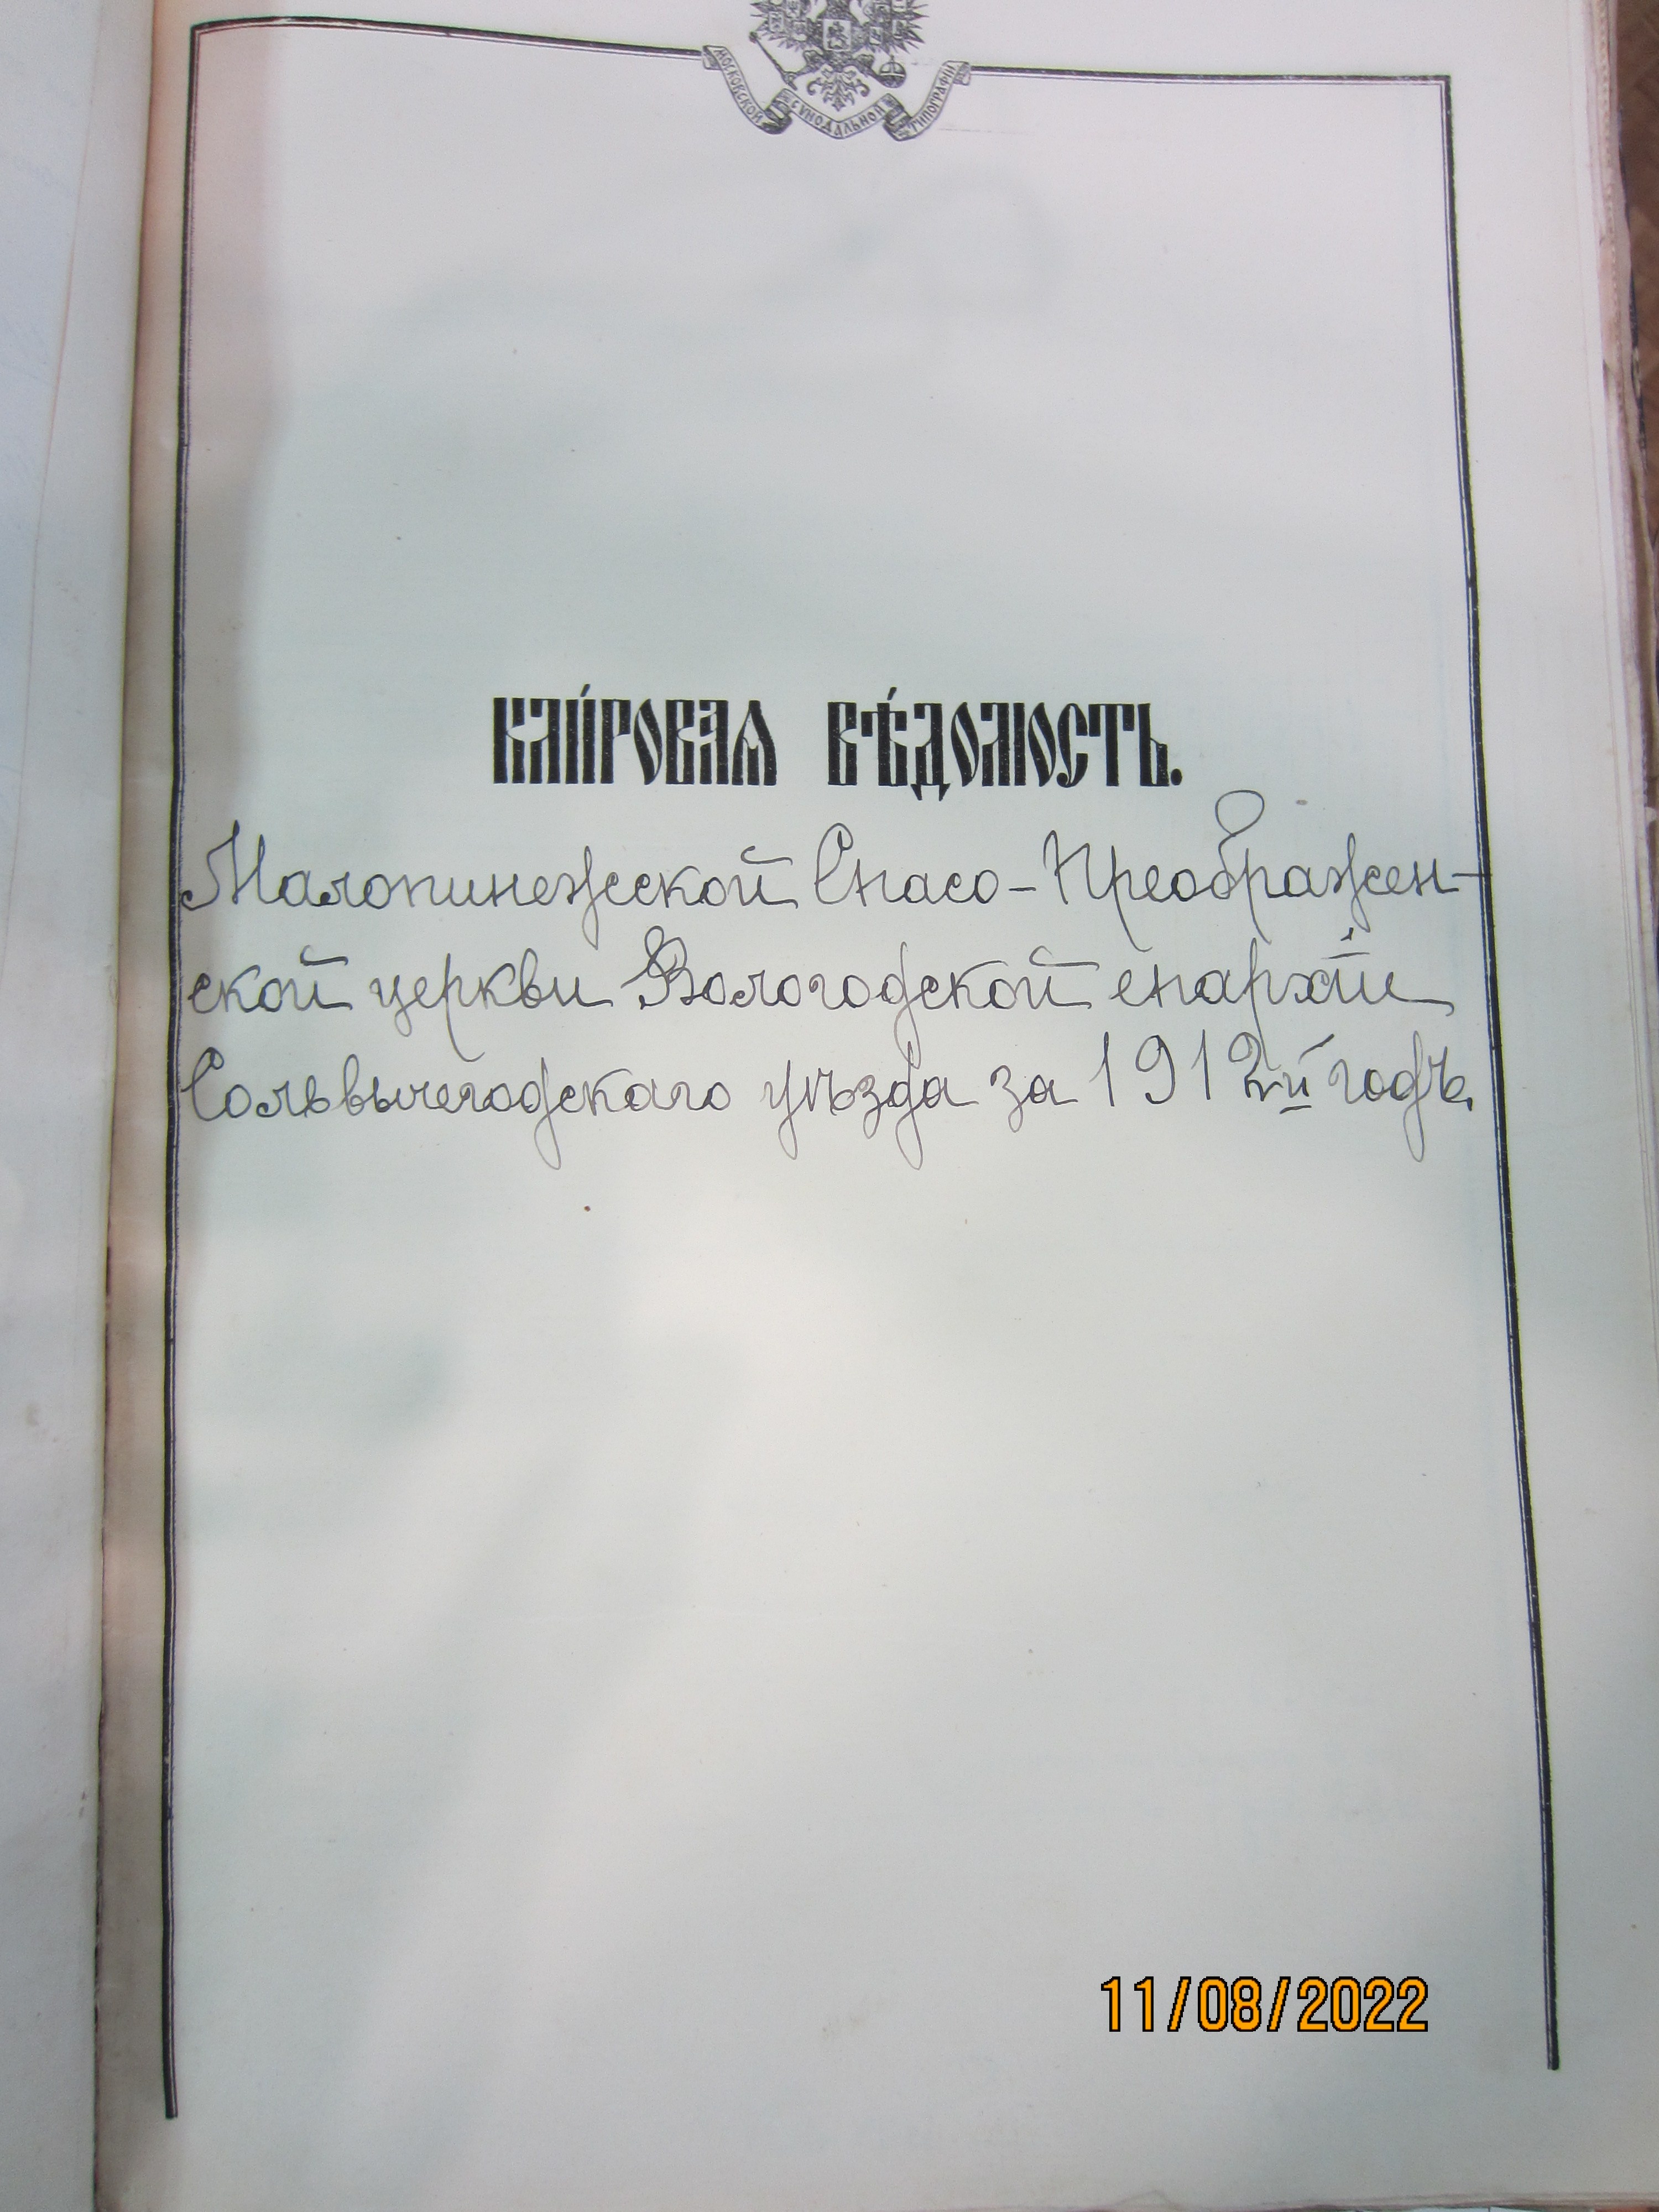 МОСКОВСКОЙ СѴНОДАЛЬНОЙ ТИПОГРАФІИ
КЛИ́РОВАЯ ВѢ́ДОМОСТЬ.
Малопинежской Спасо-Преображен-
ской церкви Вологодской епархіи
Сольвычегодскаго уѣзда за 1912й годъ.
11/08/2022